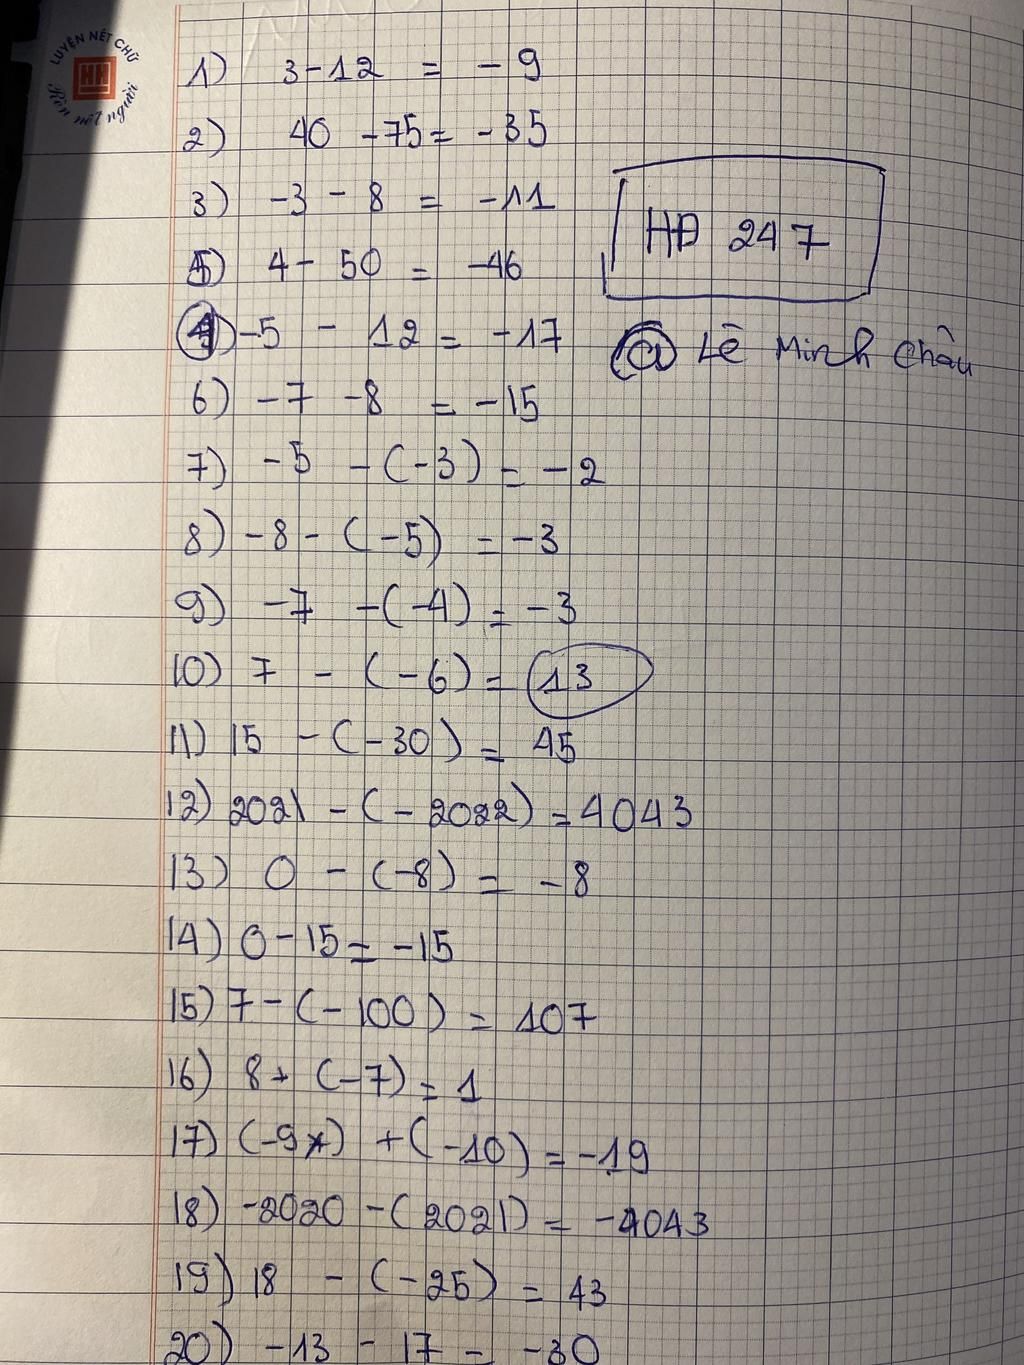 LUYỆN NÉT CHỮ
HH
Rèn nết người
1) 3-12 = -9
2) 40 -75= -35
3) -3 - 8 = -11
HĐ 247
5) 4- 50 = -46
4) -5 - 12 = -17
@ Lê Minh Châu
6) -7 -8 = -15
7) -5 -(-3) = -2
8) -8 - (-5) = -3
9) -7 -(-4) = -3
10) 7 - (-6) = 13
11) 15 -(-30) = 45
12) 2021 -(-2022) = 4043
13) 0 - (-8) = -8
14) 0-15= -15
15) 7-(-100) = 107
16) 8+ (-7) = 1
17) (-9) +(-10) = -19
18) -2020 -(2021) = -4043
19) 18 - (-25) = 43
20) -13 - 17 = -30